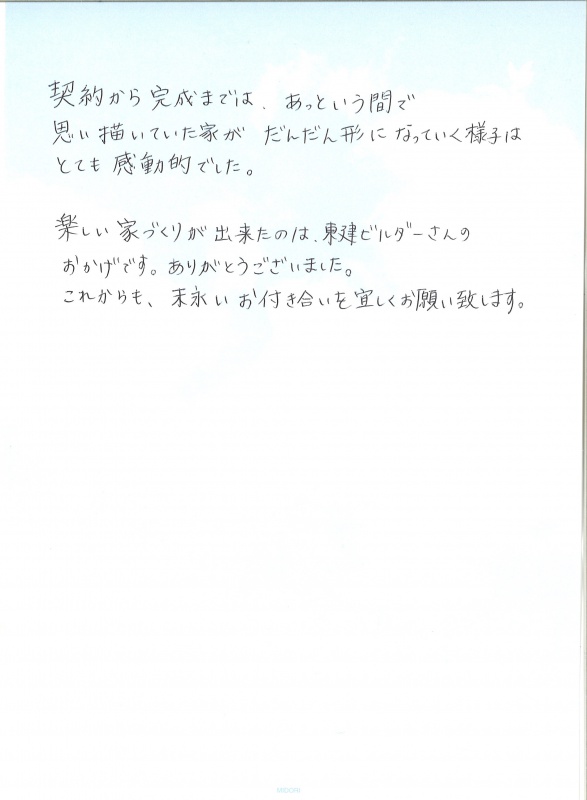 契約から完成までは、あっという間で
思い描いていた家が だんだん形に なっていく様子は
とても 感動的でした。
楽しい 家づくりが 出来たのは、東建ビルダーさんの
おかげです。ありがとうございました。
これからも、末永い お付き合いを 宜しくお願い致します。
MIDORI